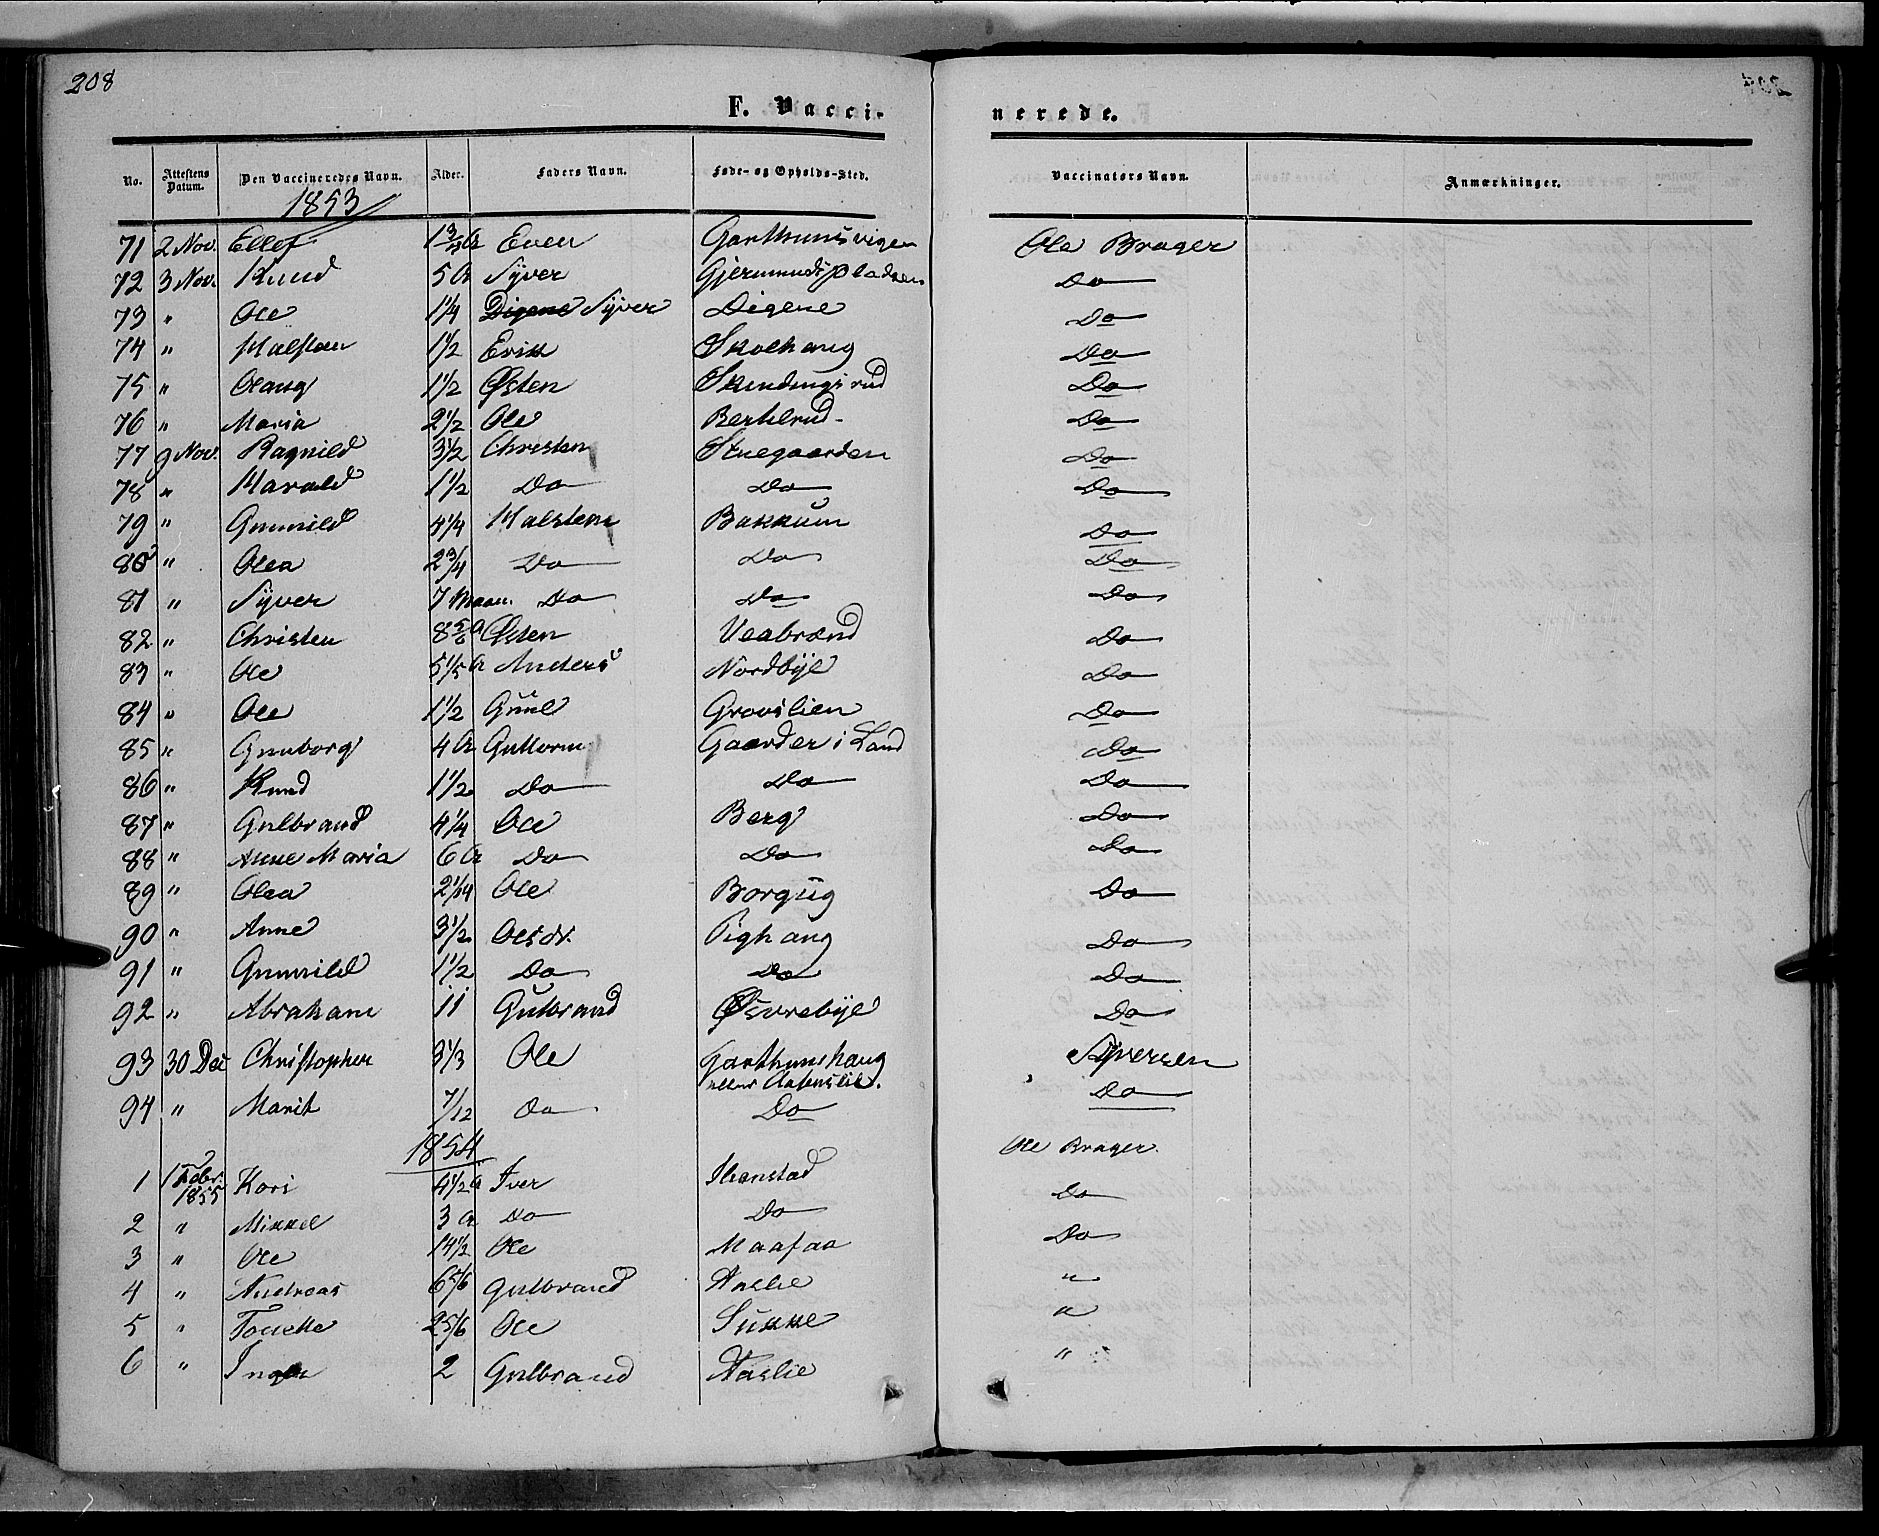 208
F. Vacci-
nerede.
No. Attestens Datum. Den Vaccineredes Navn. Alder. Faders Navn. Føde- og Opholds-Sted. Vaccinatørs Navn. Anmærkninger.
1853
71 2 Nov. Ellef Even Garthunsvigen Ole Brager
72 3 Nov. Knud 5 A Syver Gjermundspladsen Do
73 " Ole 1 1/4 Digene Syver Digene Do
74 " Halsten 1 1/2 Erik Skolhaug Do
75 " Olaug 1 1/2 Østen Do
76 " Maria 2 1/2 Ole Bertelrud Do
77 9 Nov. Ragnild 3 1/2 Christen Stuegaarden Do
78 " Harald 1 1/2 Do Do Do
79 " Gunnild 4 1/4 Halsten Bakkum Do
80 " Olea 2 3/4 Do Do Do
81 " Syver 7 Maan. Do Do Do
82 " Christen 8 5/6 A Østen Veabrænd Do
83 " Ole 5 1/5 A Anders Nordbye Do
84 " Ole 1 1/2 Guul Grovslien Do
85 " Gunborg 4 A Guttorm Gaarder i Land Do
86 " Knud 1 1/2 Do Do Do
87 " Gulbrand 4 1/4 Ole Berg Do
88 " Anne Maria 6 A Do Do Do
89 " Olea 2 1/4 Ole Borgug Do
90 " Anne 3 1/2 Pighaug Do
91 " Gunnild 1 1/2 Do Do Do
92 " Abraham 11 Gulbrand Øsvrebye Do
93 30 Dec Christopher 3 1/3 Ole Garthunshaug Syversen
94 " Marit 7/12 Do Do Do
1854
Ole Brager
1 1 Febr. 1855 Kari 4 1/2 A Iver Ilsenstad Do
2 " Mikkel 3 A Do Do Do
3 " Ole 14 1/3 Ole Maafaa "
4 " Andreas 6 5/6 Gulbrand Haslie "
5 " Tonette 2 5/6 Ole Sukke "
6 " Inger 2 Gulbrand Haslie